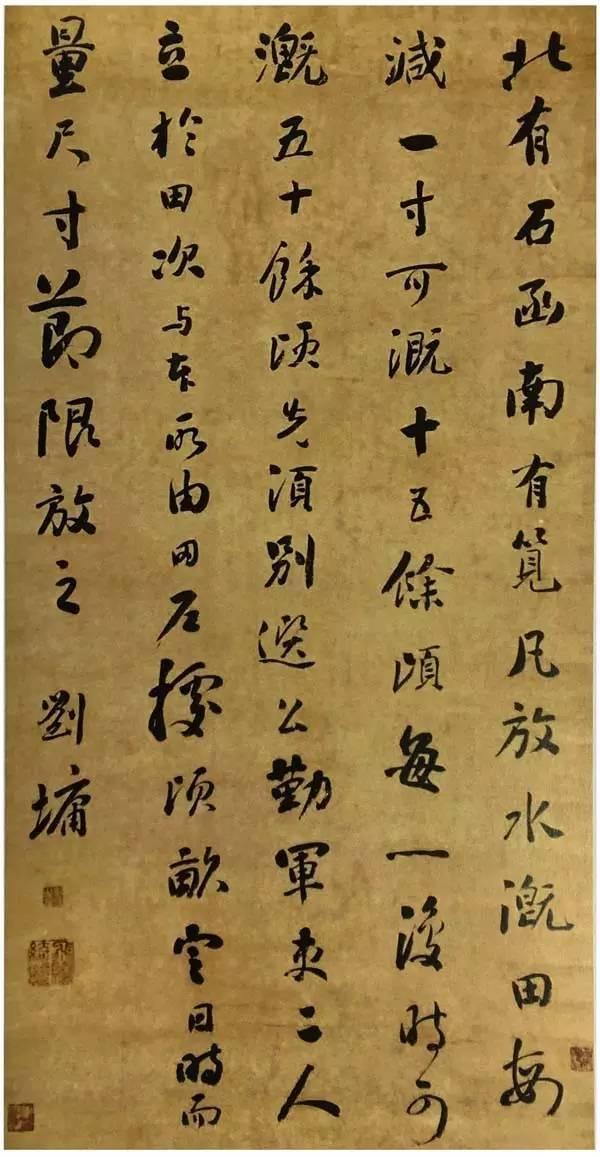 北有石函南有筧凡放水溉田每
減一寸可溉十五餘頃每一復時可
溉五十餘頃先須別選公勤軍吏二人
立於田次與本所由田戶據頃畝定日時而
量尺寸節限放之 劉墉